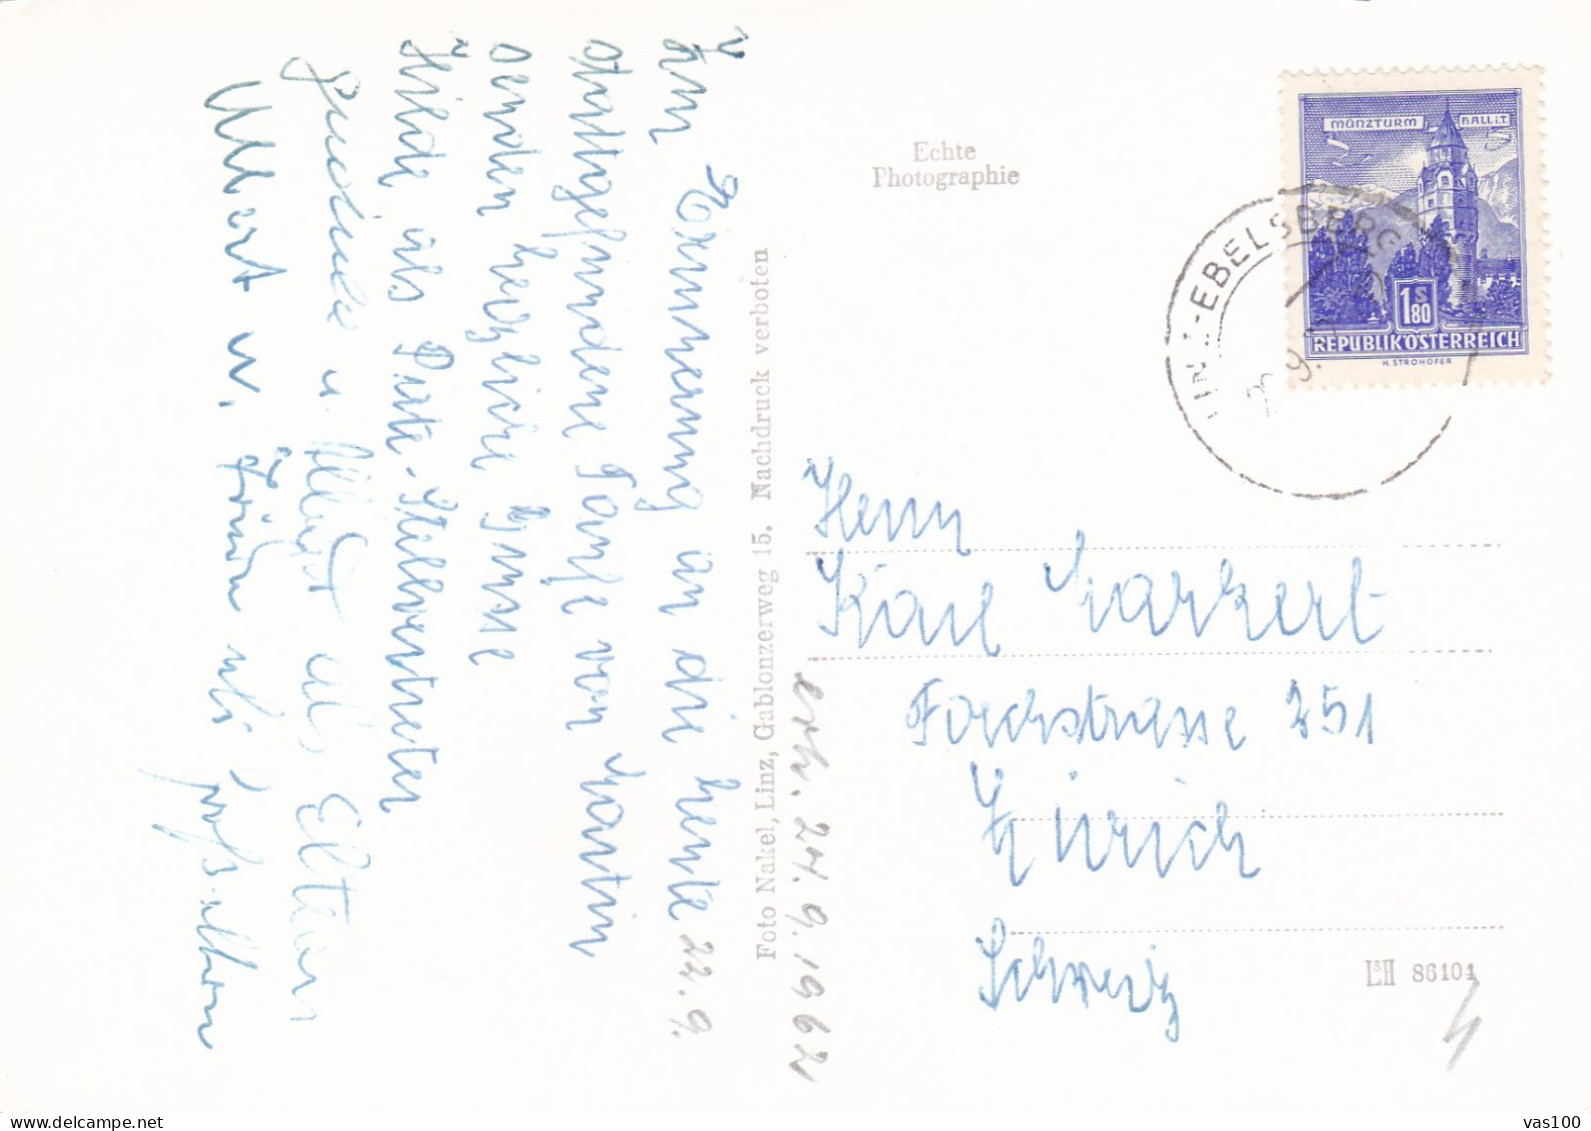 Zur Erinnerung an die heute 22.9.
stattgefundene Taufe von Martin
senden herzliche Grüsse
Hilde als Pate-Stellvertreter
u. Albert als Eltern
Albert u.
als Grosseltern
Foto Nakel, Linz, Gablonzerweg 15. Nachdruck verboten
erh. 24.9.1962
Echte
Photographie
MÜNZTURM HALL i.T.
1 S 80
REPUBLIK ÖSTERREICH
H. STROHOFER
LINZ-EBELSBERG
Herrn
Karl Markert
Forchstrasse 351
Zürich
Schweiz
L&H 86104
vas100